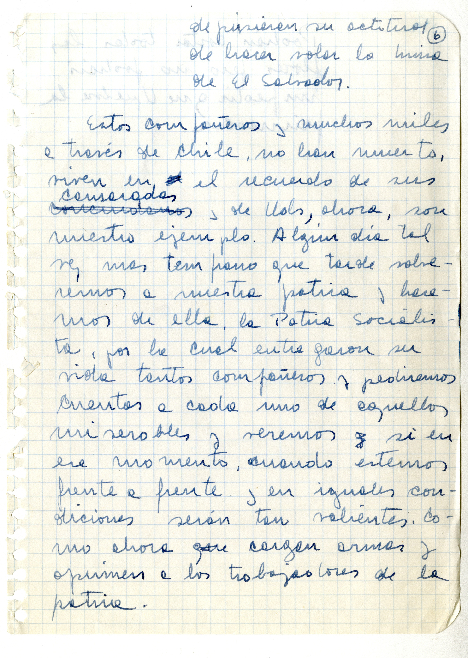 depusieran su actitud
6
de hacer volar la mina
de El Salvador.
Estos compañeros y muchos miles
a través de Chile, no han muerto,
viven en el recuerdo de sus
camaradas
y de Uds, ahora, son
nuestro ejemplo. Algún día tal
vez mas temprano que tarde volve-
remos a nuestra patria y hare-
mos de ella, la Patria Socialis-
ta, por la cual entregaron su
vida tantos compañeros y pediremos
cuentas a cada uno de aquellos
miserables y veremos si en
ese momento, cuando estemos
frente a frente y en iguales con-
diciones serán tan valientes. Co-
mo ahora que cargan armas y
oprimen a los trabajadores de la
patria.